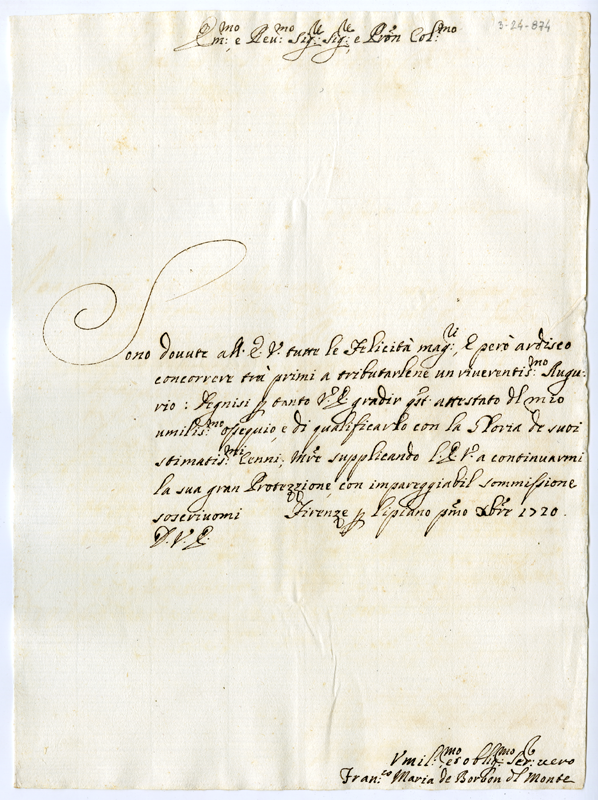 3-24-874
Em:mo e Reu:mo Sig:le Sig:le e Pron Col:mo
Sono douute all' E. V. tutte le Felicità mag:li, E però ardisco
concorrere trà primi a tributarlene un riuerentis:mo Augu-
rio: Degnisi p tanto V.E. gradir qst. attestato del mio
umilis:mo ossequio, e di qualificarlo con la Gloria de suoi
stimatis:mi Cenni, Mre supplicando L'E.V. a continuarmi
la sua gran Protezzione, con impareggiabil sommissione
soscriuomi Firenze p Lipiano pmo Xbre 1720.
D. V. E.
Vmil:mo et obblig:mo Ser: uero
Fran:co Maria de Borbon del Monte